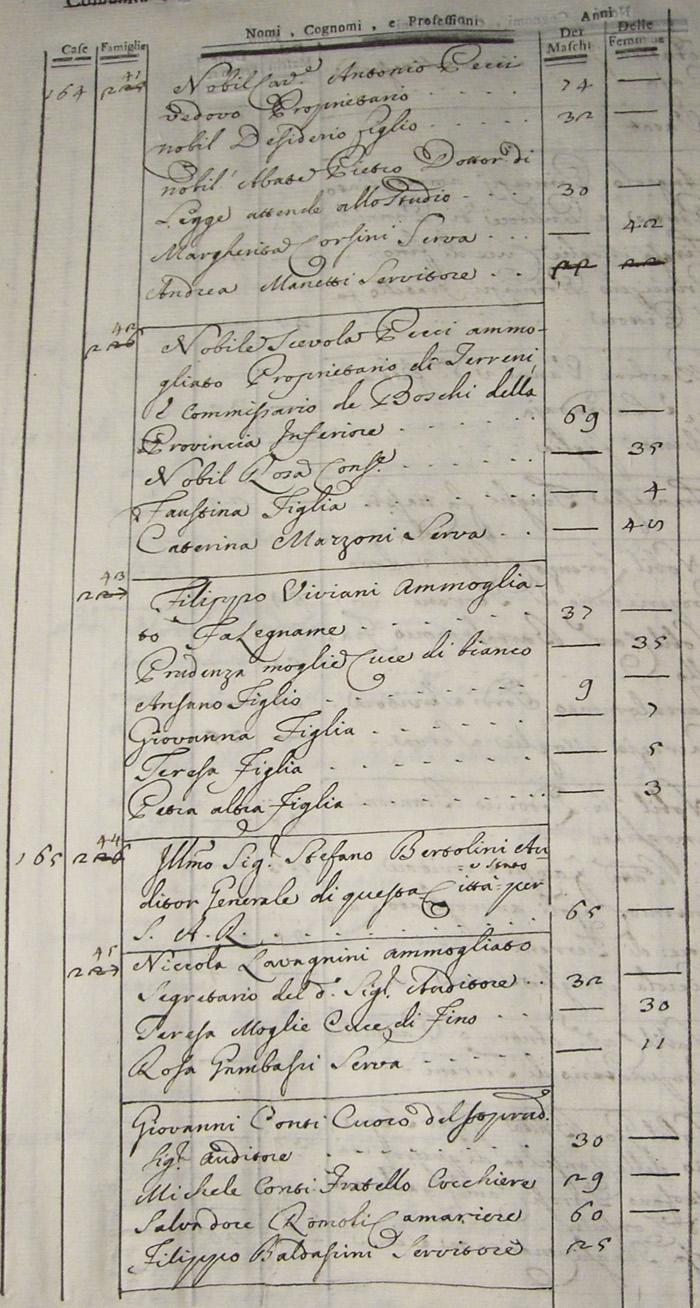 Case Famiglie Nomi, Cognomi, e Professioni Anni Dei Maschi Delle Femmine
164 41 225 Nobil Cav.e Antonio Pecci
Vedovo Proprietario 74 —
nobil Desiderio figlio 32 —
nobil Abate Pietro Dottor di
Legge attende allo Studio 30 —
Margherita Corsini Serva — 42
Andrea Manetti Servitore
42 226 Nobile Scevola Pecci ammo-
gliato Proprietario di Terreni,
e Commissario de Boschi della
Provincia Inferiore 69 —
Nobil Rosa Cons.e — 35
Faustina Figlia — 4
Caterina Marzoni Serva — 45
43 227 Filippo Viviani Ammoglia-
to Falegname 37 —
Prudenza moglie Cuce di bianco — 35
Ansano Figlio 9 —
Giovanna Figlia — 7
Teresa Figlia — 5
Petra altra Figlia — 3
165 44 Illmo Sig.r Stefano Bertolini Au-
ditor Generale di questa Città e Stato per
S. A. R. 65 —
45 Niccola Lavagnini ammogliato
Segretario del d.o Sig.r Auditore 32 —
Teresa Moglie Cuce di Fino — 30
Rosa Gambassi Serva — 11
Giovanni Conti Cuoco del soprad.
Sig.r Auditore 30 —
Michele Conti Fratello Cocchiere 29 —
Salvadore Romoli Camariere 60 —
Filippo Baldassini Servitore 25